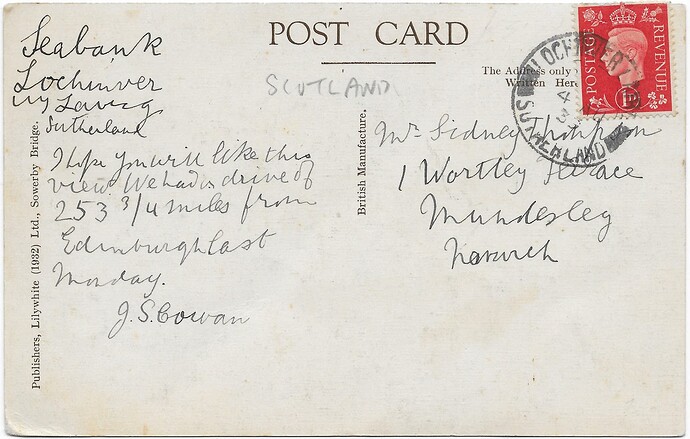 POST CARD
SCOTLAND
The Address only
Written Here
POSTAGE
REVENUE
LOCHINVER
SUTHERLAND
Seabank
Lochinver
by Lairg
Sutherland
I hope you will like this
view. We had a drive of
253 3/4 miles from
Edinburgh last
Monday.
J.S. Cowan
Mr Sidney Thompson
1 Wortley Terrace
Mundesley
Norwich
British Manufacture.
Publishers, Lilywhite (1932) Ltd., Sowerby Bridge.